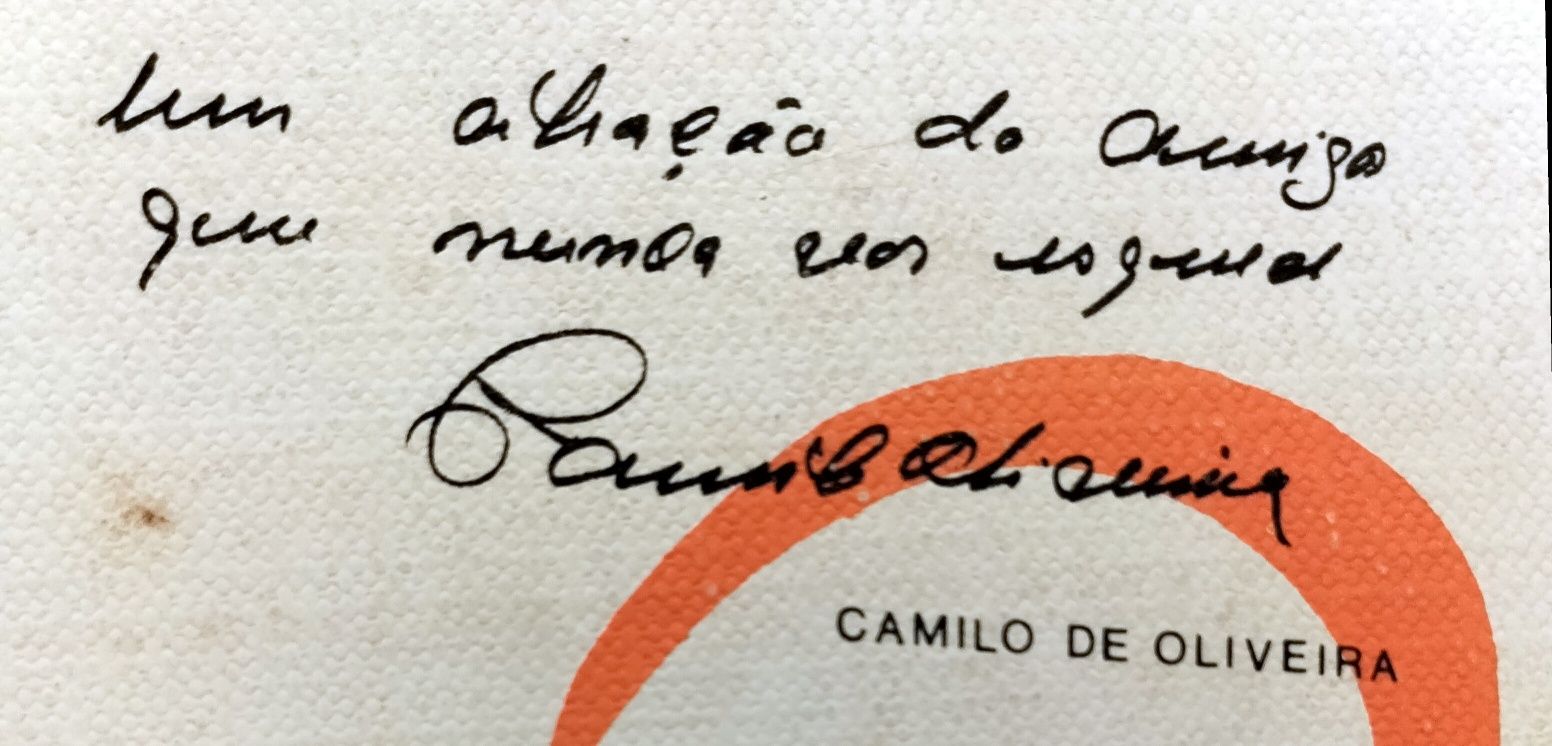 um abração do amigo
que nunca vos esquece
Camilo Oliveira
CAMILO DE OLIVEIRA